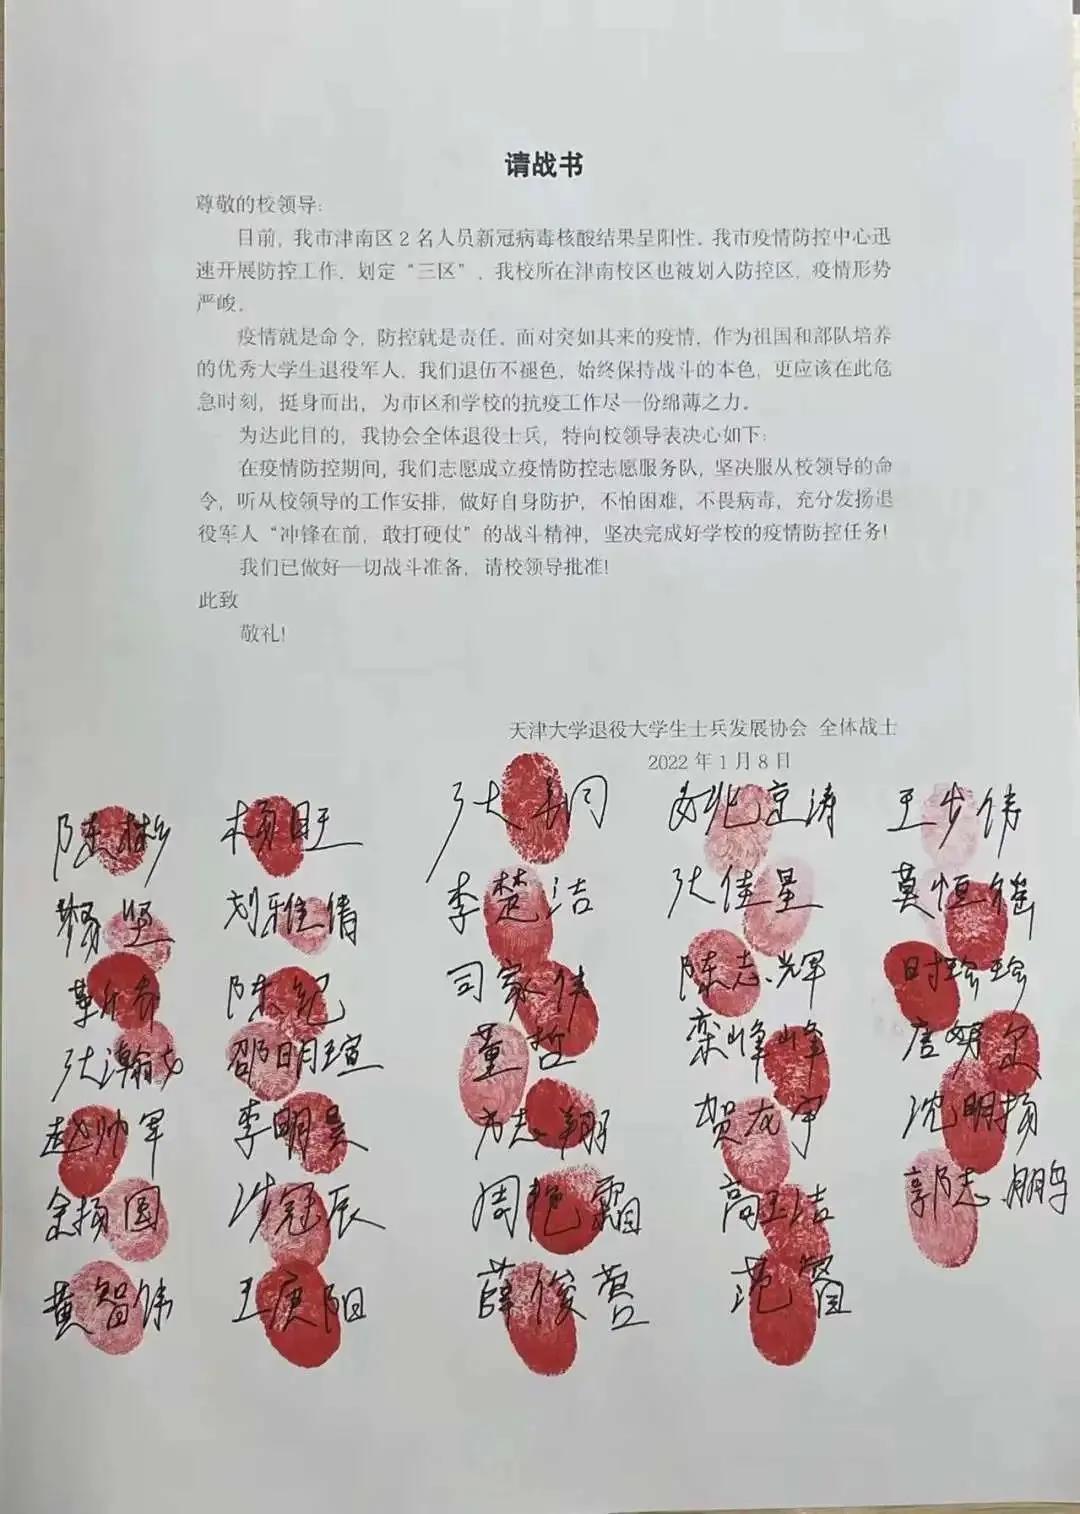 请战书
尊敬的校领导:
目前,我市津南区2名人员新冠病毒核酸结果呈阳性。我市疫情防控中心迅
速开展防控工作、划定“三区”、我校所在津南校区也被划入防控区,疫情形势
严峻。
疫情就是命令,防控就是责任。面对突如其来的疫情,作为祖国和部队培养
的优秀大学生退役军人,我们退伍不褪色,始终保持战斗的本色,更应该在此危
急时刻,挺身而出,为市区和学校的抗疫工作尽一份绵薄之力。
为达此目的,我协会全体退役士兵,特向校领导表决心如下:
在疫情防控期间,我们志愿成立疫情防控志愿服务队,坚决服从校领导的命
令,听从校领导的工作安排,做好自身防护,不怕困难,不畏病毒,充分发扬退
役军人“冲锋在前,敢打硬仗”的战斗精神,坚决完成好学校的疫情防控任务!
我们已做好一切战斗准备,请校领导批准!
此致
敬礼!
天津大学退役大学生士兵发展协会 全体战士
2022年1月8日
陈彬 杨旺 王步伟
杨坚 刘雅倩 李楚洁 张佳星 莫恒
陈纪 司家伟 陈志辉 时珍珍
邵明瑄 董哲 栾峰峰
赵帅军 李明昊 志翔 贺友宇 沈明扬
余扬图 冠辰 周艳霜 高玉洁 郭志鹏
黄智伟 王庚阳 薛俊营 范